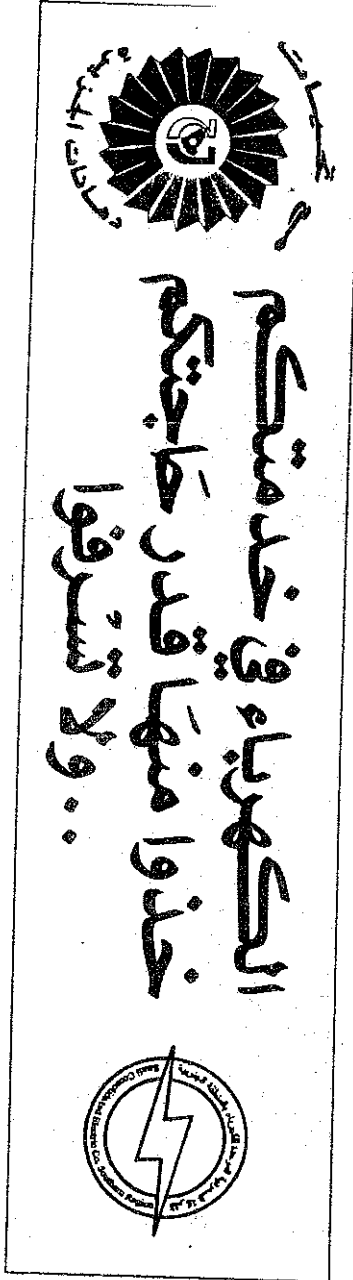 الكهرباء في خدمتكم
خذوا منها قدر حاجتكم
ولا تسرفوا..
دهانات الجزيرة
Saudi Consolidated Electric Co. Southern Region